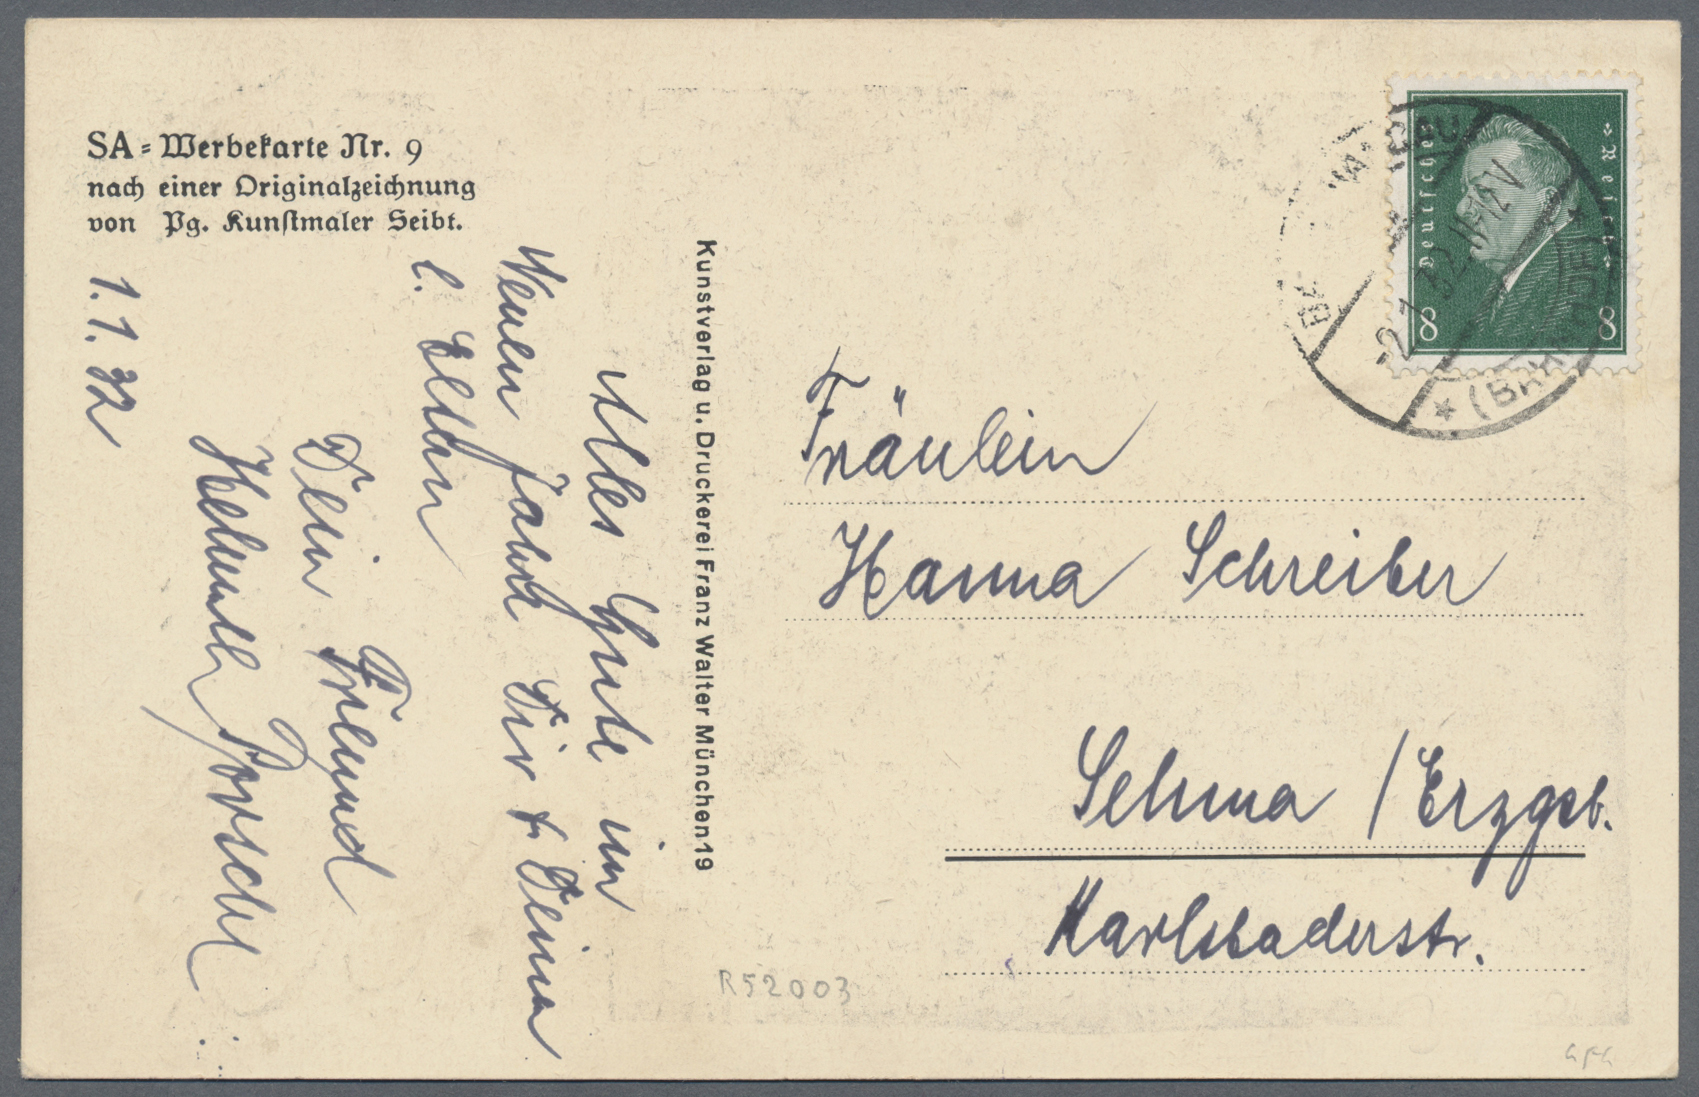 SA-Werbekarte Nr. 9
nach einer Originalzeichnung
von Pg. Kunstmaler Seibt.
1.1.32
Alles Gute im
Neuen Jahre Dir & Deinen
l. Eltern
Dein Freund
Helmuth
Kunstverlag u. Druckerei Franz Walter München 19
Deutsches Reich
8 8
-2.1.32.11-12V
* (BAHNHOF) *
Fräulein
Hanna Schreiber
Sehma / Erzgeb.
Karlsbaderstr.
R52003